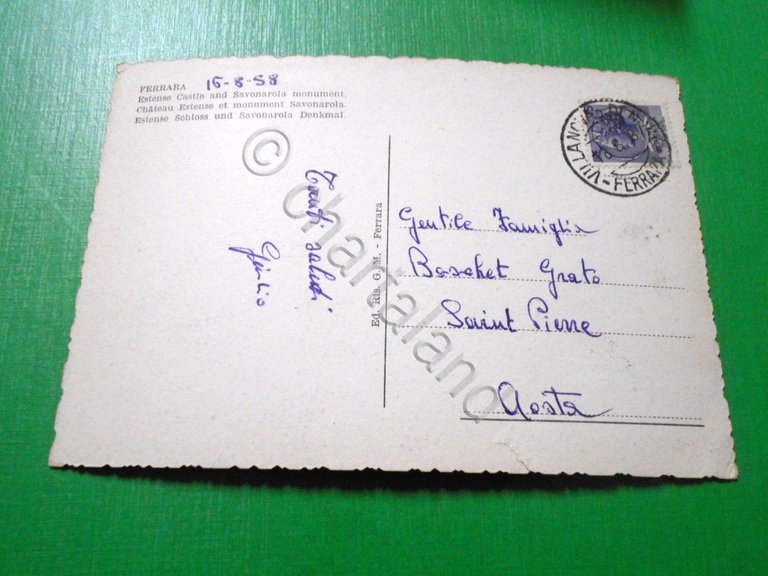 FERRARA 15-8-58
Estense Castle and Savonarola monument.
Château Estense et monument Savonarola.
Estense Schloss und Savonarola Denkmal.
Tanti saluti
Giulio
Ed. Ris. G. M. - Ferrara
Gentile Famiglia
Boschet Grato
Saint Pierre
Aosta
FERRARA
© chartaland